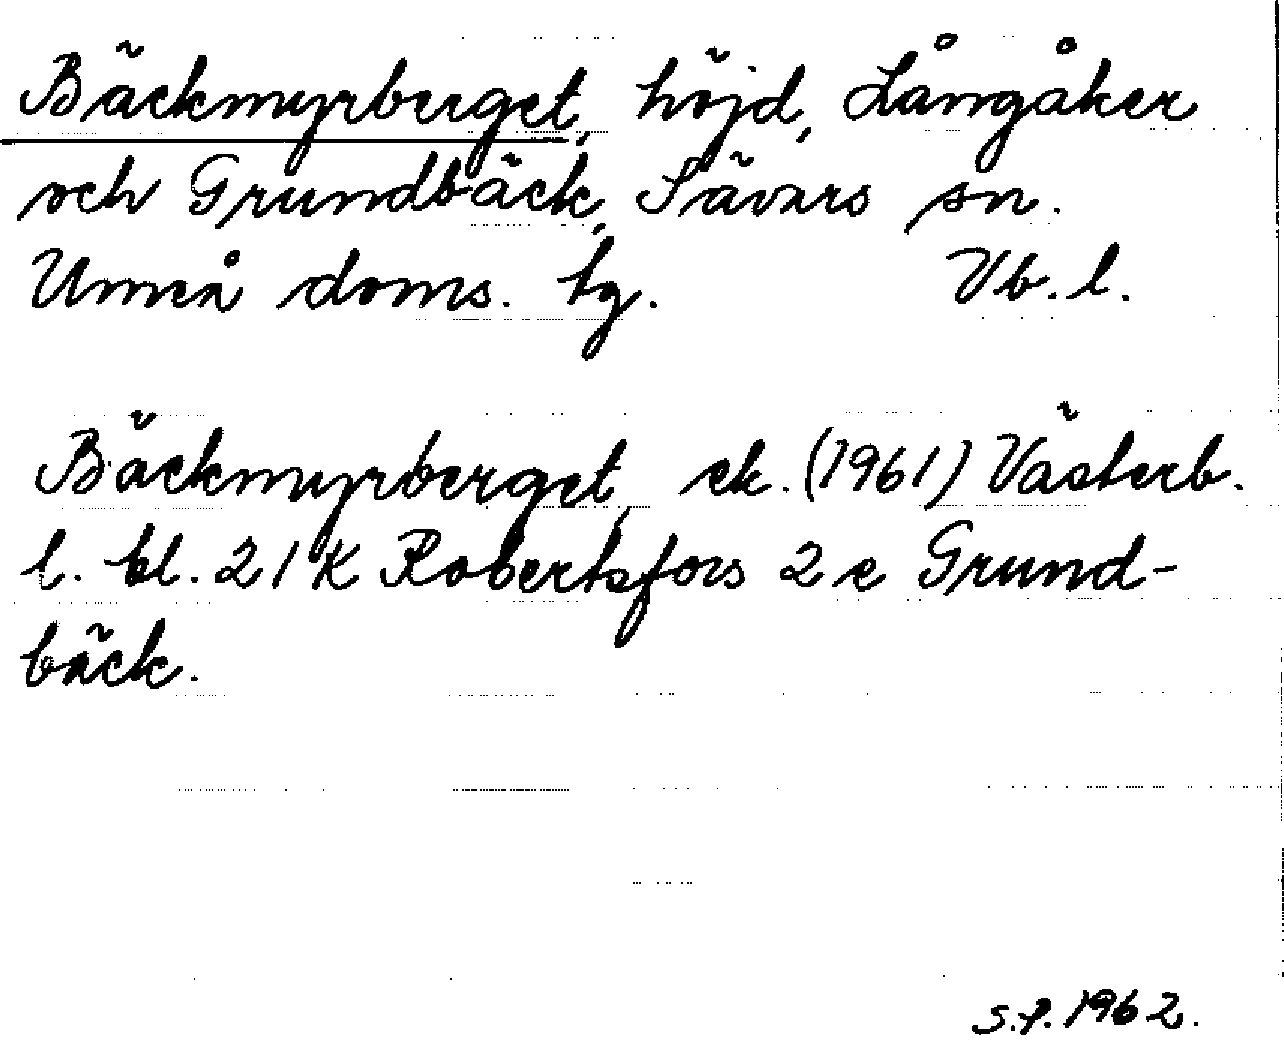 Bäckmyrberget, höjd, Långåker
och Grundbäck, Sävars sn.
Umeå doms. tg. Vb. l.
Bäckmyrberget, ek. (1961) Västerb.
l. bl. 21K Robertsfors 2e Grund-
bäck.
S.P. 1962.